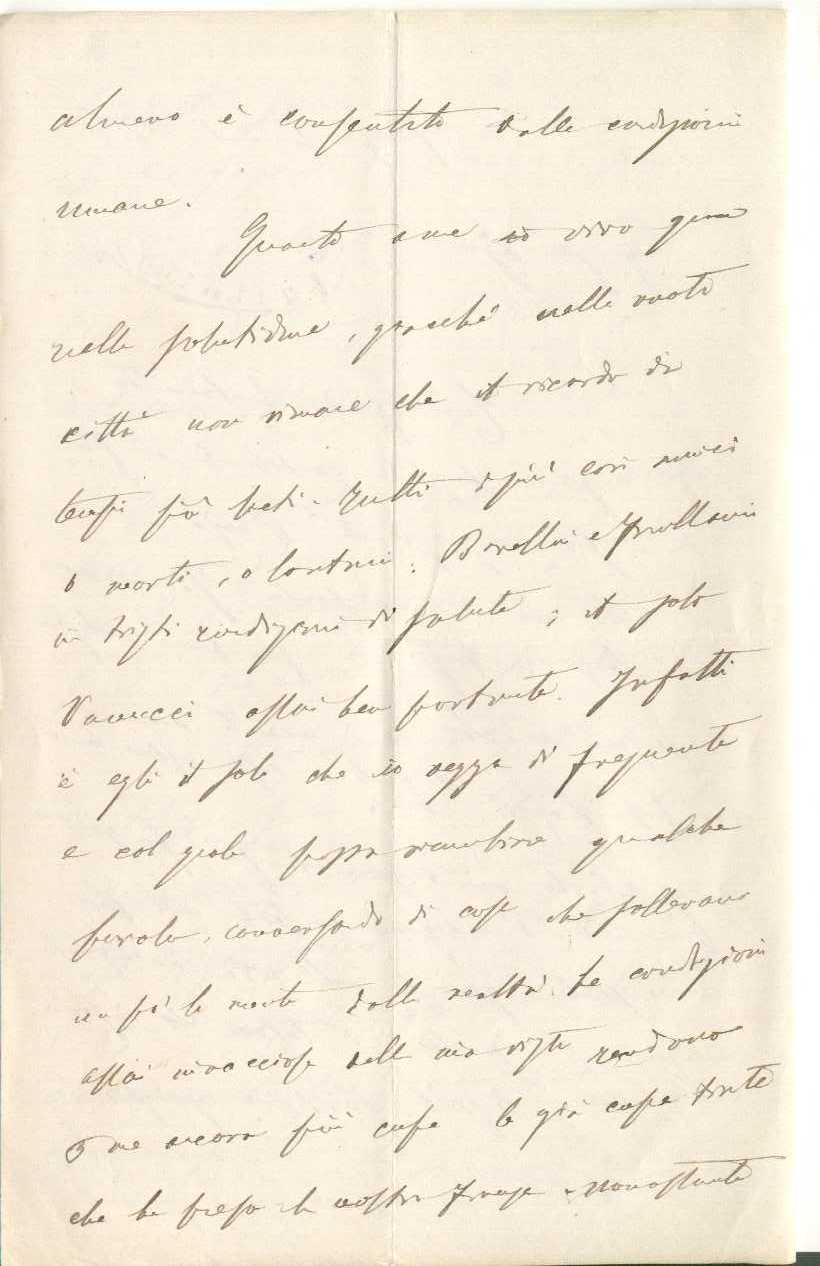 almeno è consentito dalle condizioni
umane.
Quanto a me io vivo qua
nella solitudine, giacché nella vuota
città non rimane che il ricordo di
tempi più lieti. Tutti i più cari amici
o morti, o lontani: Barellai e
in tristi condizioni di salute; il solo
Vannucci assai ben portante. Infatti
è egli il solo che io vegga di frequente
e col quale possa ricambiare qualche
parola, conversando di cose che sollevano
un po' la mente dalla realtà. Le condizioni
assai minacciose della mia vista rendono
a me ancora più cupe le già cupe tinte
che ha preso la nostra Firenze. nonostante